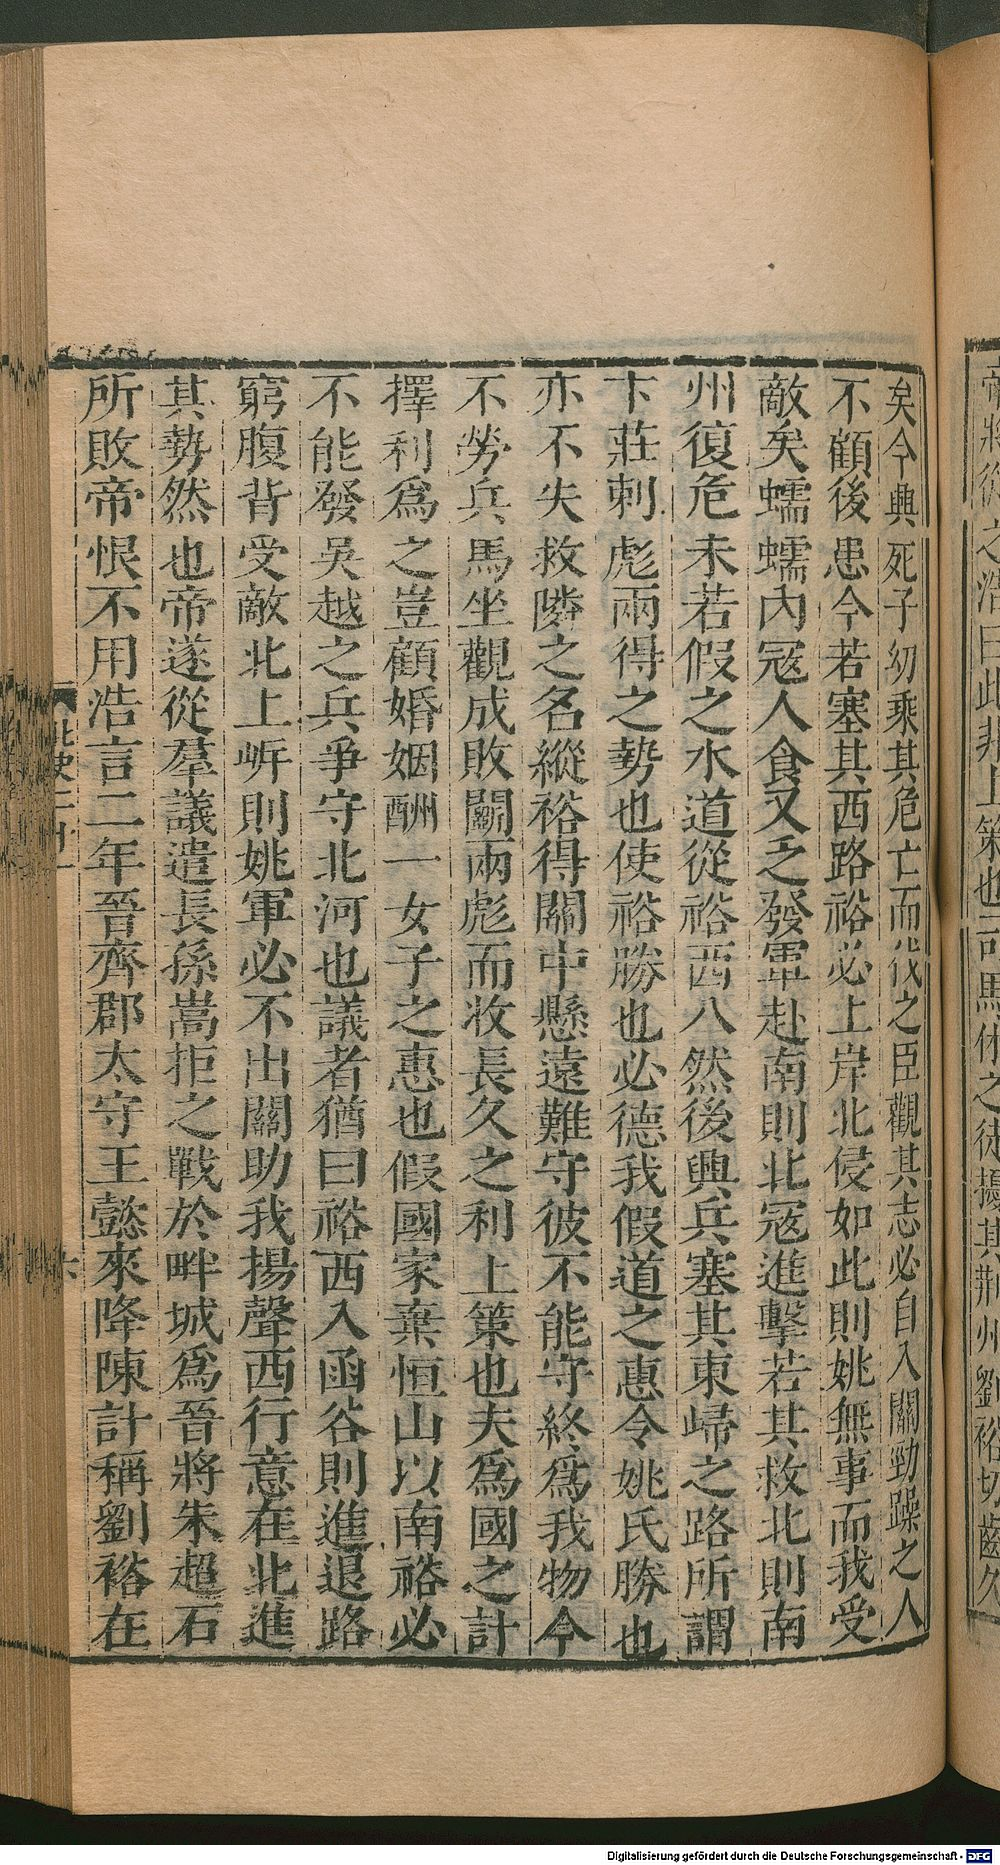 矣今興死子幼乘其危亡而伐之臣觀其志必自入關勁躁之人
不顧後患今若塞其西路裕必上岸北侵如此則姚無事而我受
敵矣蠕蠕內冦人食又乏發軍赴南則北冦進擊若其救北則南
州復危未若假之水道從裕西入然後興兵塞其東歸之路所謂
卞莊刺彪兩得之勢也使裕勝也必德我假道之惠令姚氏勝也
亦不失救隣之名縱裕得關中懸遠難守彼不能守終爲我物今
不勞兵馬坐觀成敗鬭兩彪而收長久之利上策也夫爲國之計
擇利爲之豈顧婚姻酬一女子之惠也假國家棄恒山以南裕必
不能發吳越之兵爭守北河也議者猶曰裕西入函谷則進退路
窮腹背受敵北上岍則姚軍必不出關助我揚聲西行意在北進
其勢然也帝遂從羣議遣長孫嵩拒之戰於畔城爲晉將朱超石
所敗帝恨不用浩言二年晉齊郡太守王懿來降陳計稱劉裕在
北史二十一
六
帝將從之浩曰此非上策也司馬休之徒擾其荆州劉裕切齒久
Digitalisierung gefördert durch die Deutsche Forschungsgemeinschaft - DFG